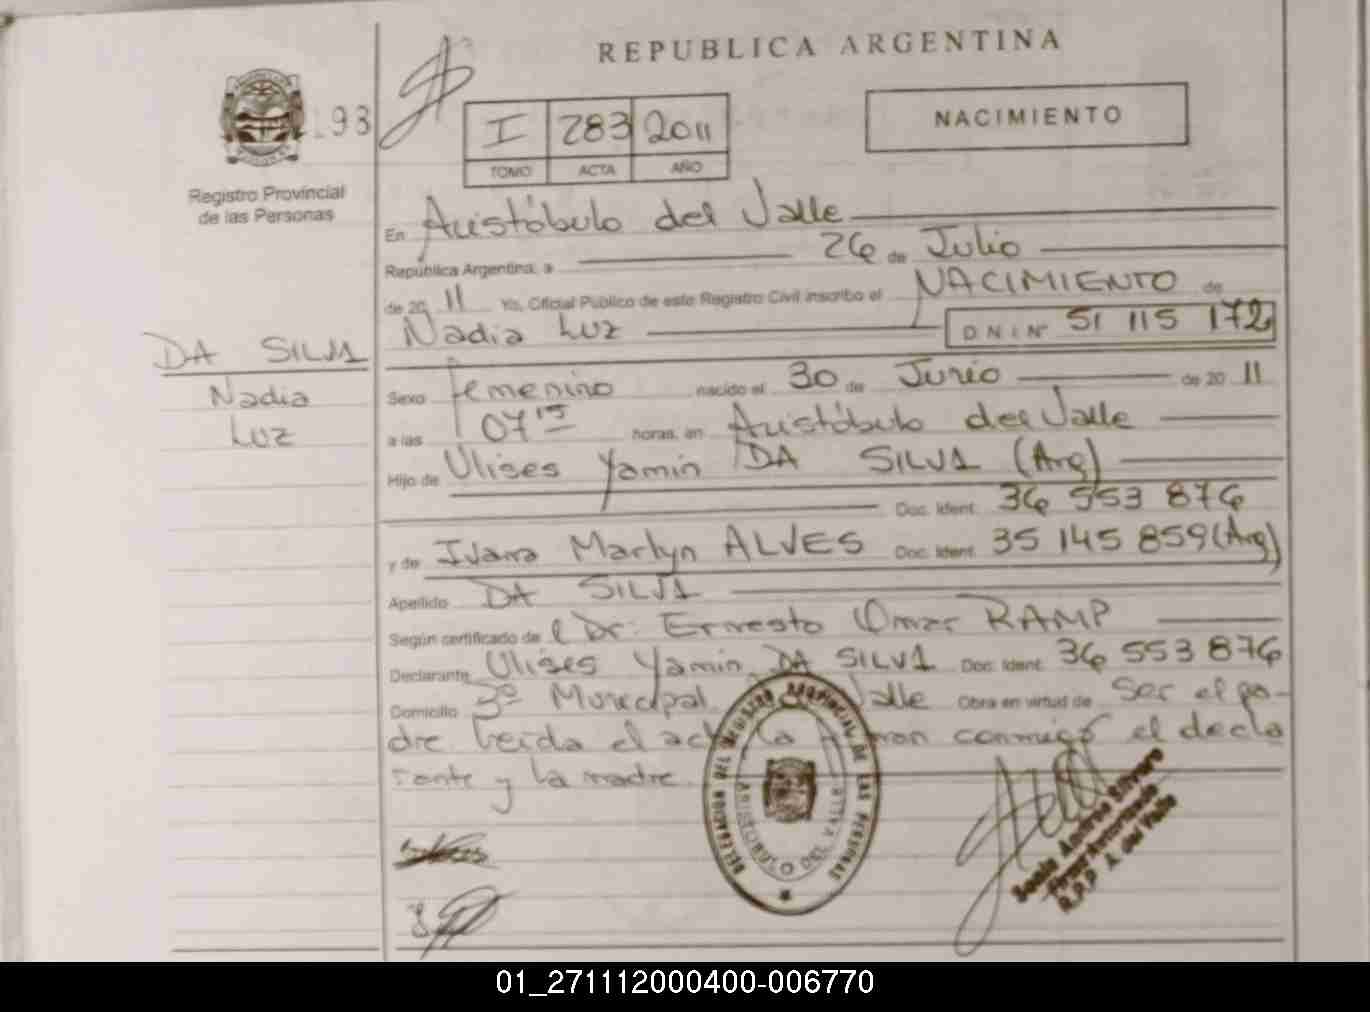 REPUBLICA ARGENTINA
193
I 283 2011
TOMO ACTA AÑO
NACIMIENTO
Registro Provincial
de las Personas
En Aristóbulo del Valle
República Argentina, a 26 de Julio
de 20 11 Yo, Oficial Público de este Registro Civil inscribo el NACIMIENTO de
Nadia Luz D N I Nº 51 115 172
DA SILVA
Nadia
Luz
Sexo femenino nacido el 30 de Junio de 20 11
a las 07 15 horas, en Aristóbulo del Valle
Hijo de Ulises Yamin DA SILVA (Arg)
Doc. Ident. 36 553 876
y de Ivana Marlyn ALVES Doc. Ident. 35 145 859 (Arg)
Apellido DA SILVA
Según certificado de l Dr. Ernesto Omar RAMP
Declarante Ulises Yamin DA SILVA Doc. Ident. 36 553 876
Domicilio 3º Municipal Valle Obra en virtud de Ser el pa-
dre leida el acta la conmigo el decla
rante y la madre
DELEGACION DEL REGISTRO PROVINCIAL DE LAS PERSONAS
ARISTOBULO DEL VALLE
Sonia Andrea Silvero
Firma Autorizada
R.P.P. A. del Valle
01_271112000400-006770